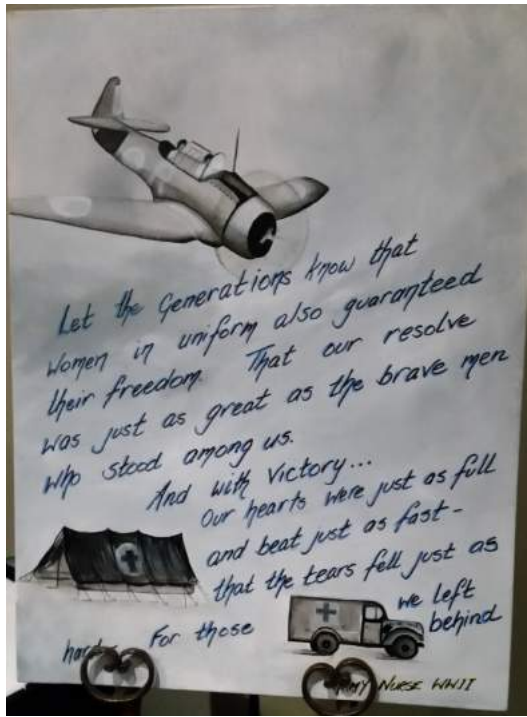 Let the Generations know that
Women in uniform also guaranteed
their freedom. That our resolve
was just as great as the brave men
who stood among us.
And with Victory...
Our hearts were just as full
and beat just as fast-
that the tears fell just as
hard For those we left
behind
NURSE WWII